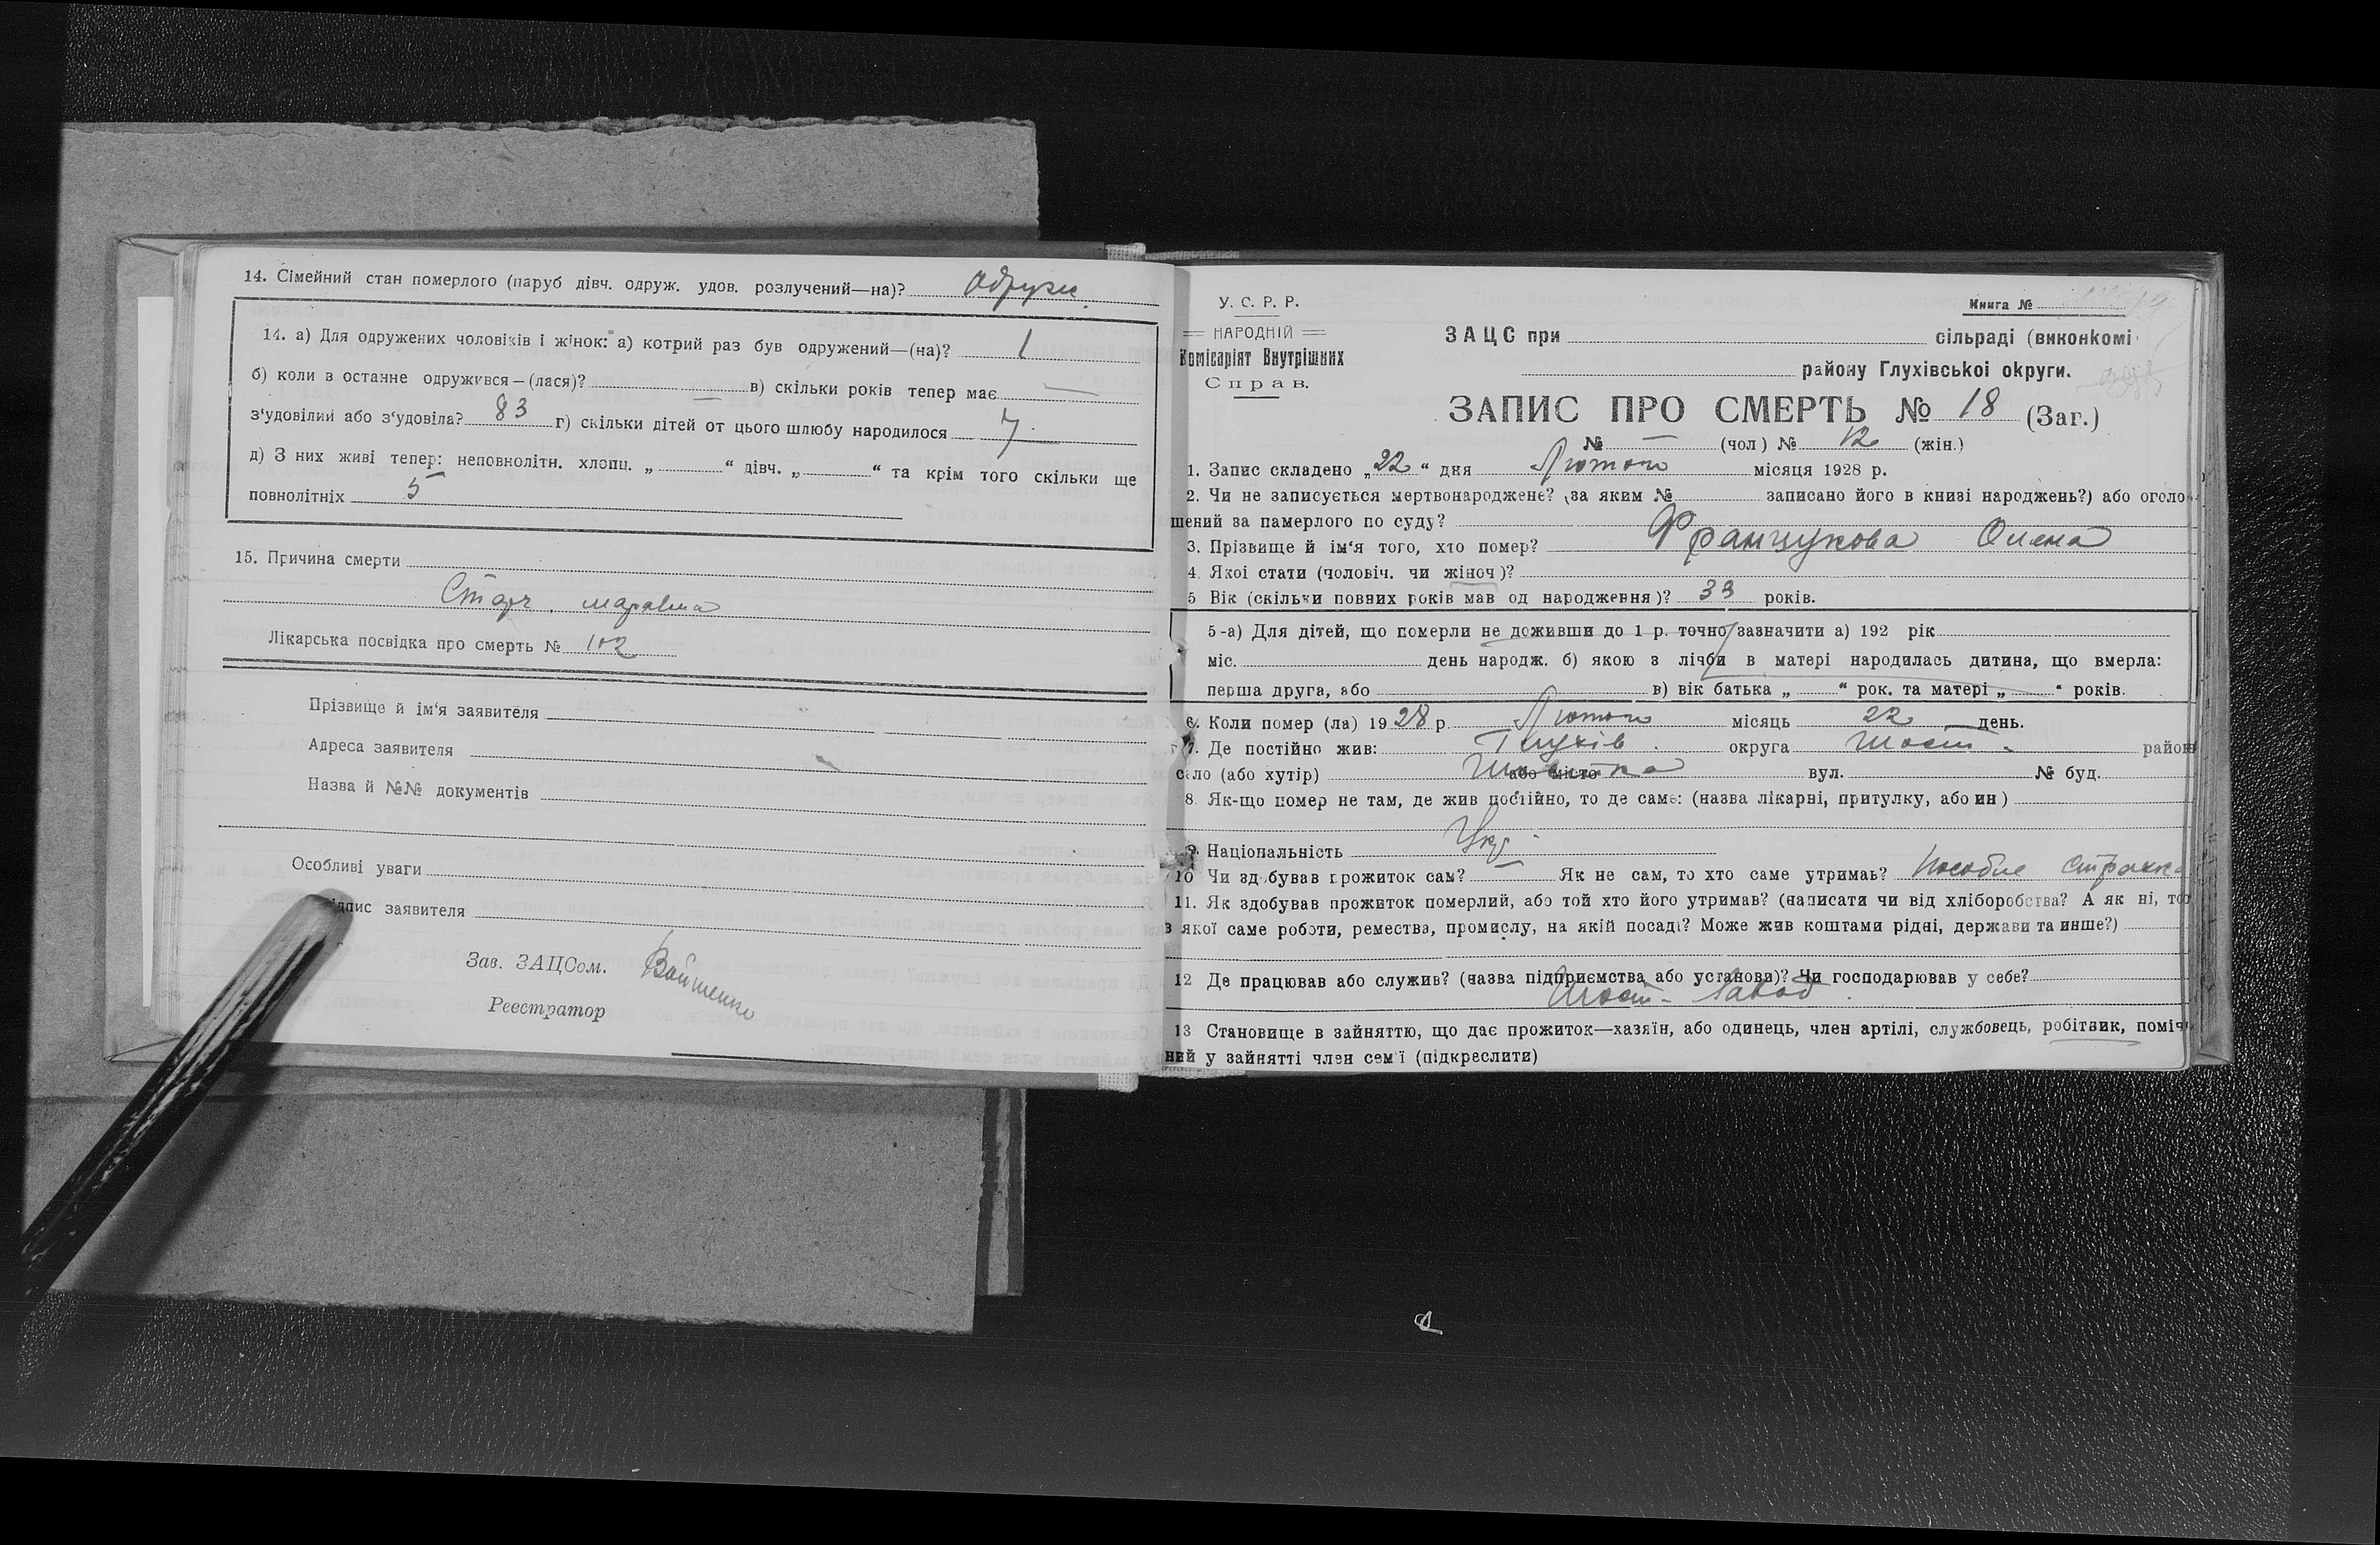 14. Сімейний стан померлого (паруб дівч. одруж. удов. розлучений—на)? Одруж.
14. а) Для одружених чоловіків і жінок: а) котрий раз був одружений—(на)? 1
б) коли в останнє одружився—(лася)? — в) скільки років тепер має —
з'удовілий або з'удовіла? 83 г) скільки дітей от цього шлюбу народилося 7
д) З них живі тепер: неповнолітн. хлопц. „ “ дівч. „ “ та крім того скільки ще
повнолітніх 5
15. Причина смерти
Старч.
Лікарська посвідка про смерть № 102
Прізвище й ім'я заявителя
Адреса заявителя
Назва й №№ документів
Особливі уваги
ідпис заявителя
Зав. ЗАЦСом. Войтенко
Реєстратор
У. С. Р. Р.
НАРОДНІЙ
Комісаріят Внутрішних
Справ.
Книга №
ЗАЦС при сільраді (виконкомі
району Глухівської округи.
ЗАПИС ПРО СМЕРТЬ № 18 (Заг.)
№ — (чол) № 12 (жін.)
1. Запис складено „22“ дня Лютого місяця 1928 р.
2. Чи не записується мертвонароджене? (за яким № записано його в книзі народжень?) або оголо
шений за памерлого по суду?
3. Прізвище й ім'я того, хто помер? Францукова Олена
4. Якоі стати (чоловіч. чи жіноч)?
5 Вік (скільки повних років мав од народження)? 33 років.
5-а) Для дітей, що померли не доживши до 1 р. точно зазначити а) 192 рік
міс. день народж. б) якою з лічби в матері народилась дитина, що вмерла:
перша друга, або в) вік батька „ “ рок. та матері „ “ років.
6. Коли помер (ла) 1928 р. Лютого місяць 22 день.
7. Де постійно жив: Глухів. округа Шост. район
село (або хутір) або місто вул. № буд.
8. Як-що помер не там, де жив постійно, то де саме: (назва лікарні, притулку, або ин)
9. Національність Укр.
10 Чи здобував прожиток сам? — Як не сам, то хто саме утримав? Пособие
11. Як здобував прожиток померлий, або той хто його утримав? (написати чи від хліборобства? А як ні, то
з якої саме роботи, ремества, промислу, на якій посаді? Може жив коштами рідні, держави та инше?)
12 Де працював або служив? (назва підприємства або установи)? Чи господарював у себе?
Шост. Завод.
13 Становище в зайняттю, що дає прожиток—хазяїн, або одинець, член артілі, службовець, робітник, поміч
ний у зайнятті член сем'ї (підкреслити)